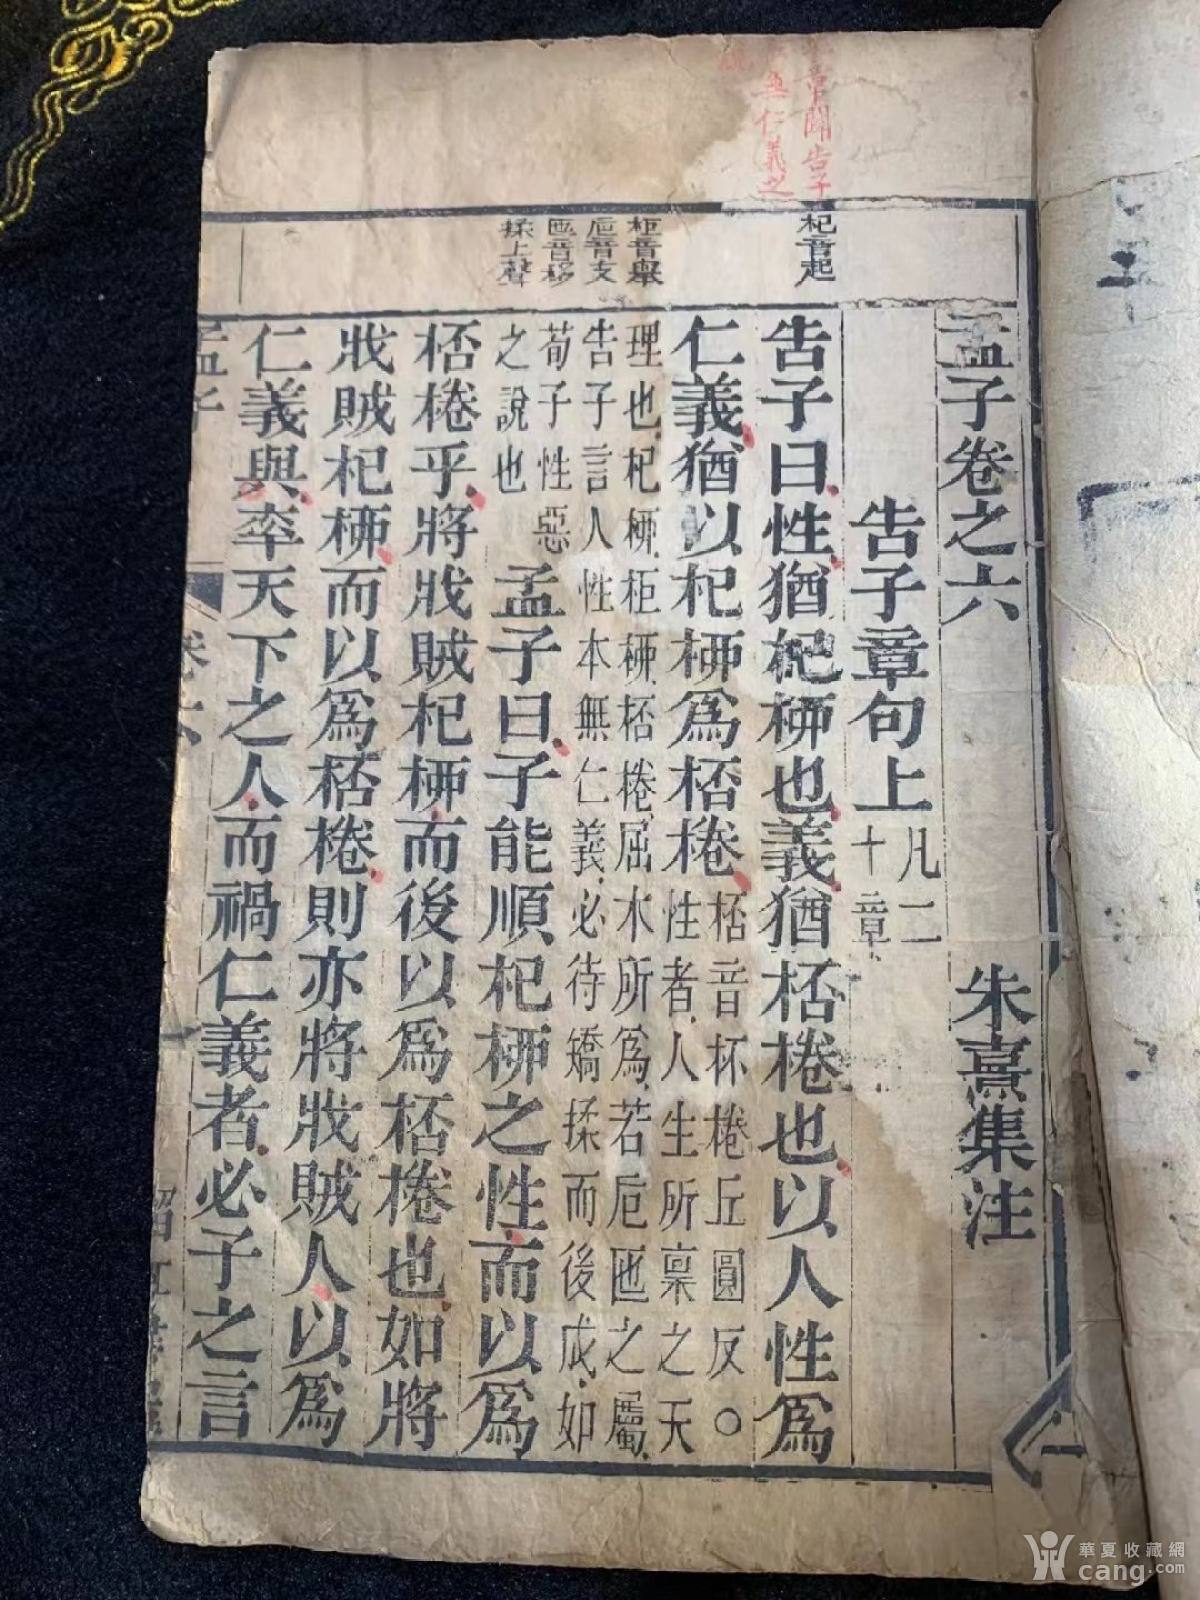 嘗聞告子
無仁義之
杞音起
柜音舉
巵音支
匜音移
揉上聲
孟子卷之六 朱熹集注
告子章句上 凡二
十章
告子曰性猶杞柳也義猶桮棬也以人性爲
仁義猶以杞柳爲桮棬 桮音杯棬丘圓反○
性者人生所稟之天
理也杞柳柜柳桮棬屈木所爲若巵匜之屬
告子言人性本無仁義必待矯揉而後成如
荀子性惡
之說也
孟子曰子能順杞柳之性而以爲
桮棬乎將戕賊杞柳而後以爲桮棬也如將
戕賊杞柳而以爲桮棬則亦將戕賊人以爲
仁義與率天下之人而禍仁義者必子之言
孟子 卷六 一
華夏收藏網
cang.com